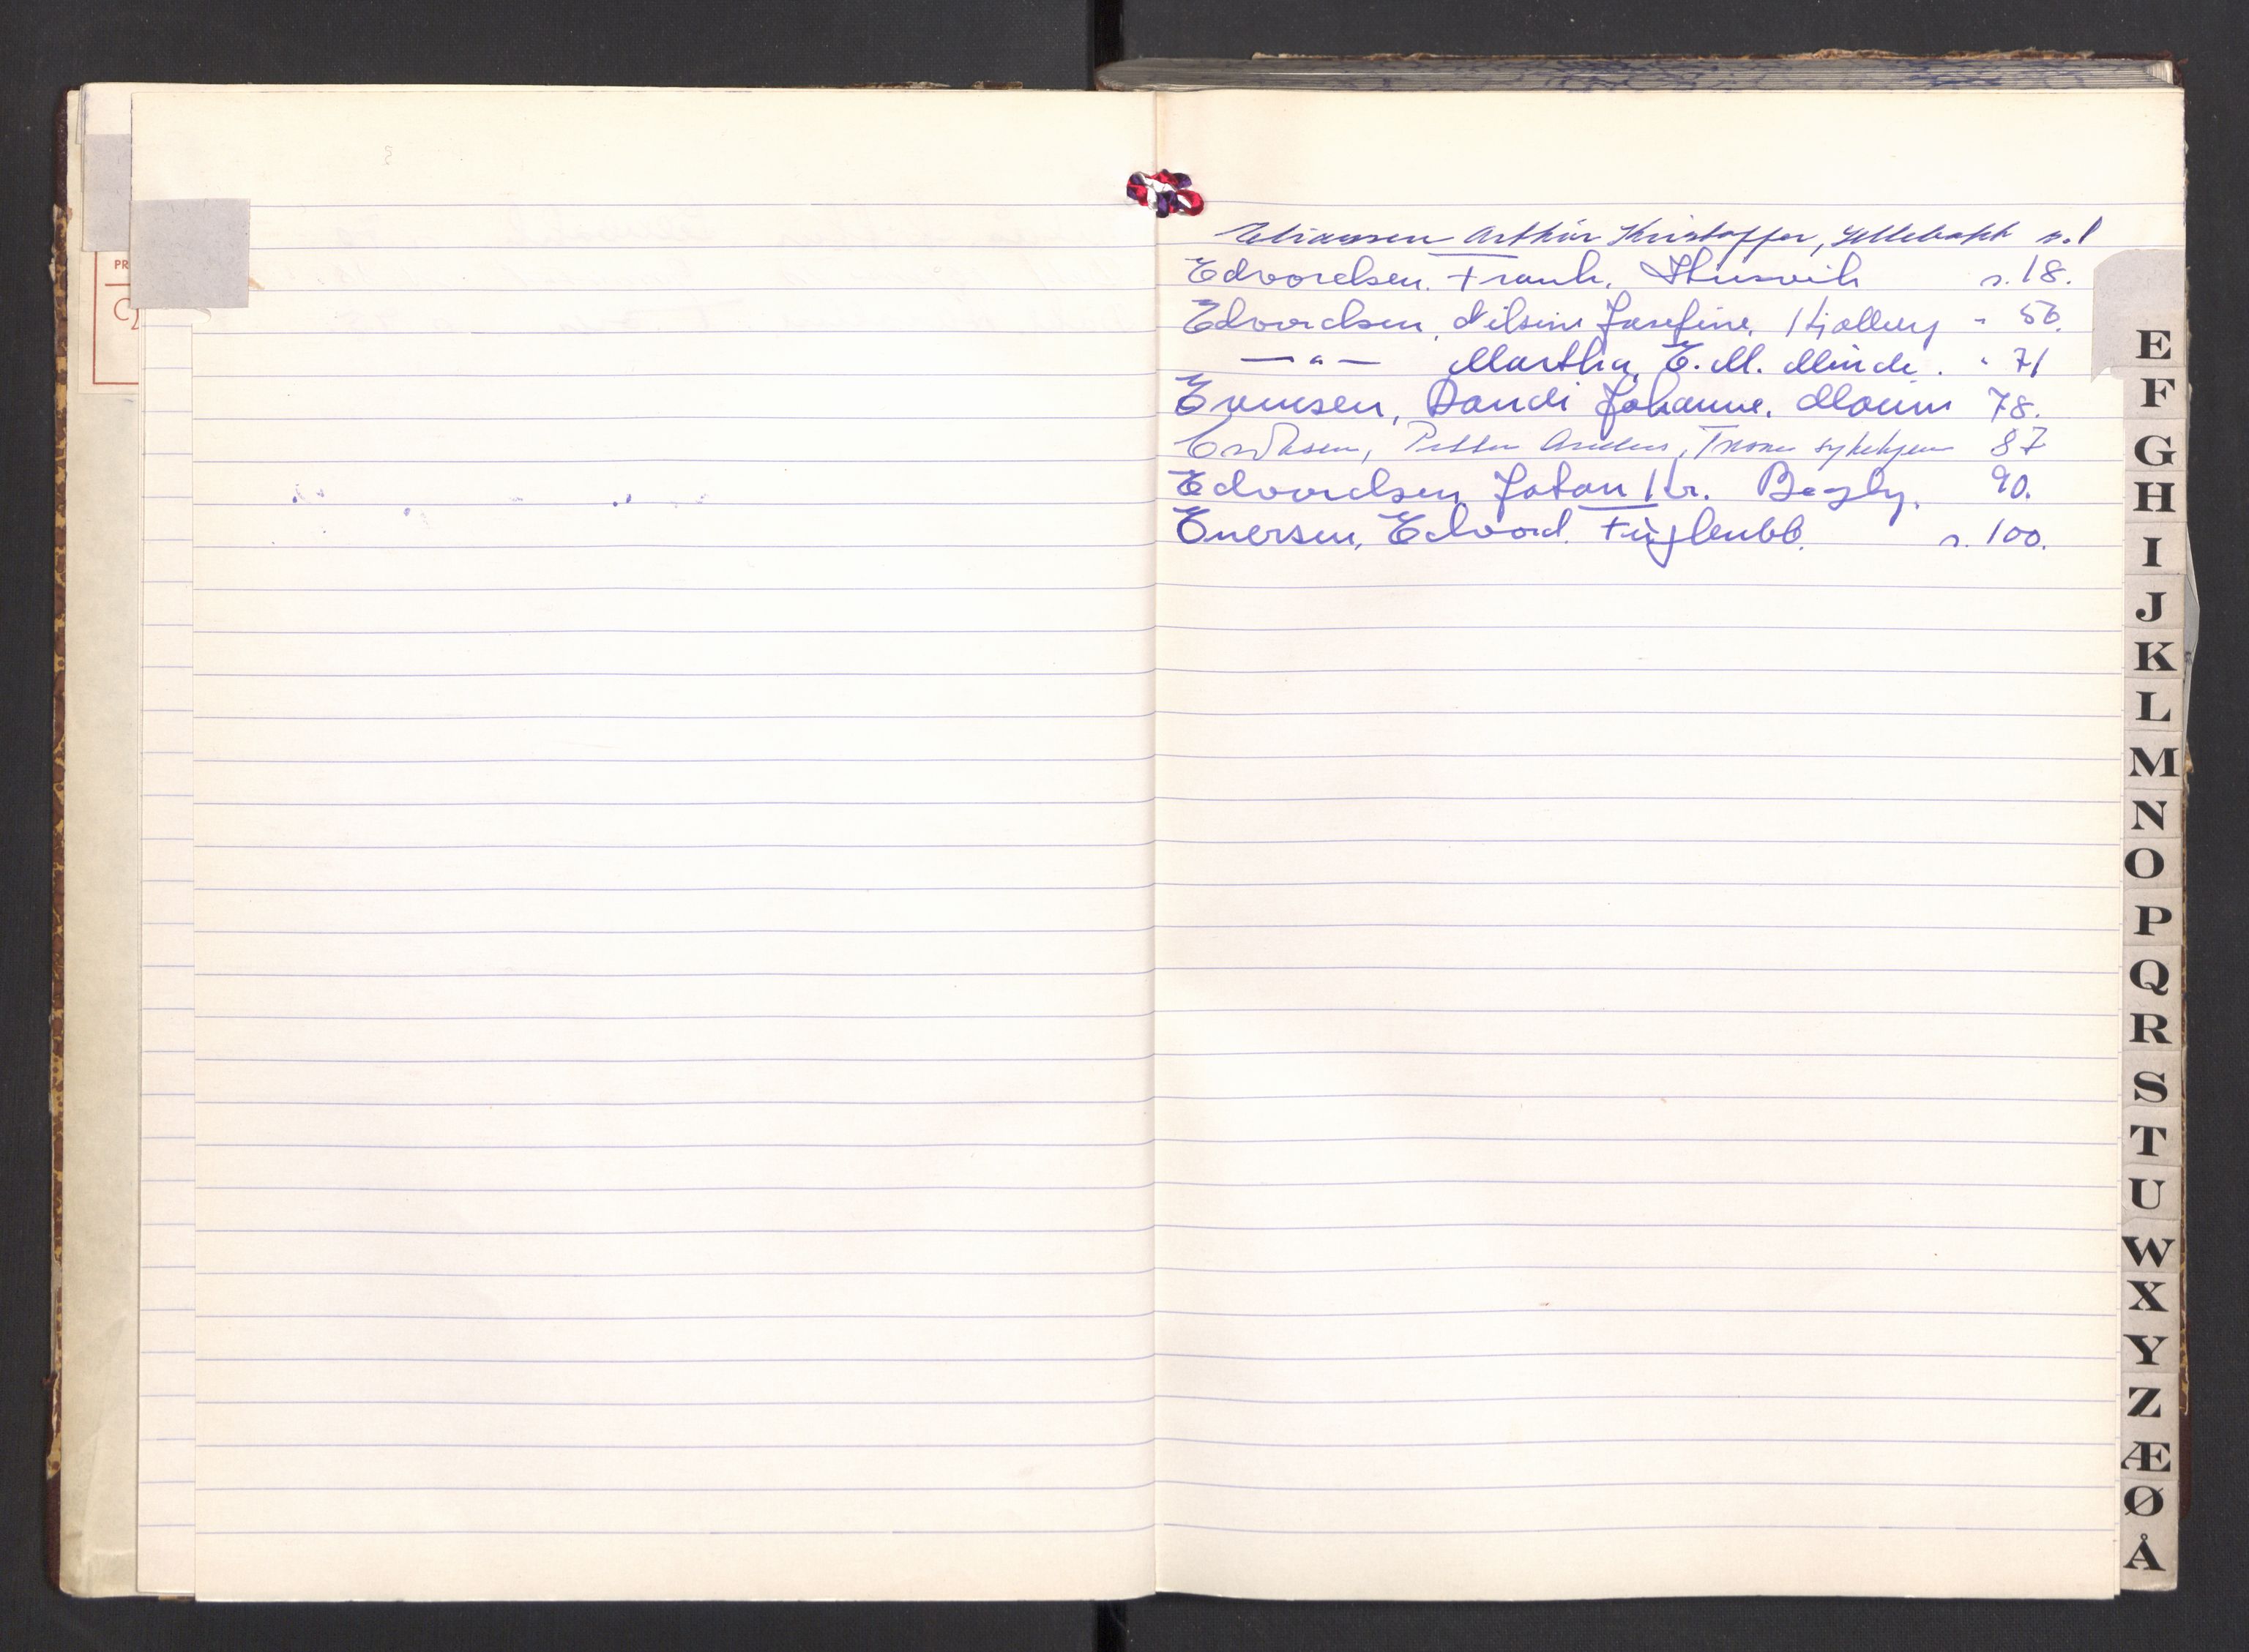 PR
Eliassen Arthur Kristoffer, Sellebakk s. 1
Edvardsen. Frank. Husvik s. 18.
Edvardsen, Nilsine Josefine. Kjølberg " 56.
— " — Martha, E. M. Minde. " 71
Evensen, Bandi Johanne. Moum 78.
Eriksen, Petter Anders, Troms sykehjem 87
Edvardsen Johan Kr. Begby. 90.
Enersen, Edvard. Fuglevik. s. 100.
E
F
G
H
I
J
K
L
M
N
O
P
Q
R
S
T
U
W
X
Y
Z
Æ
Ø
Å